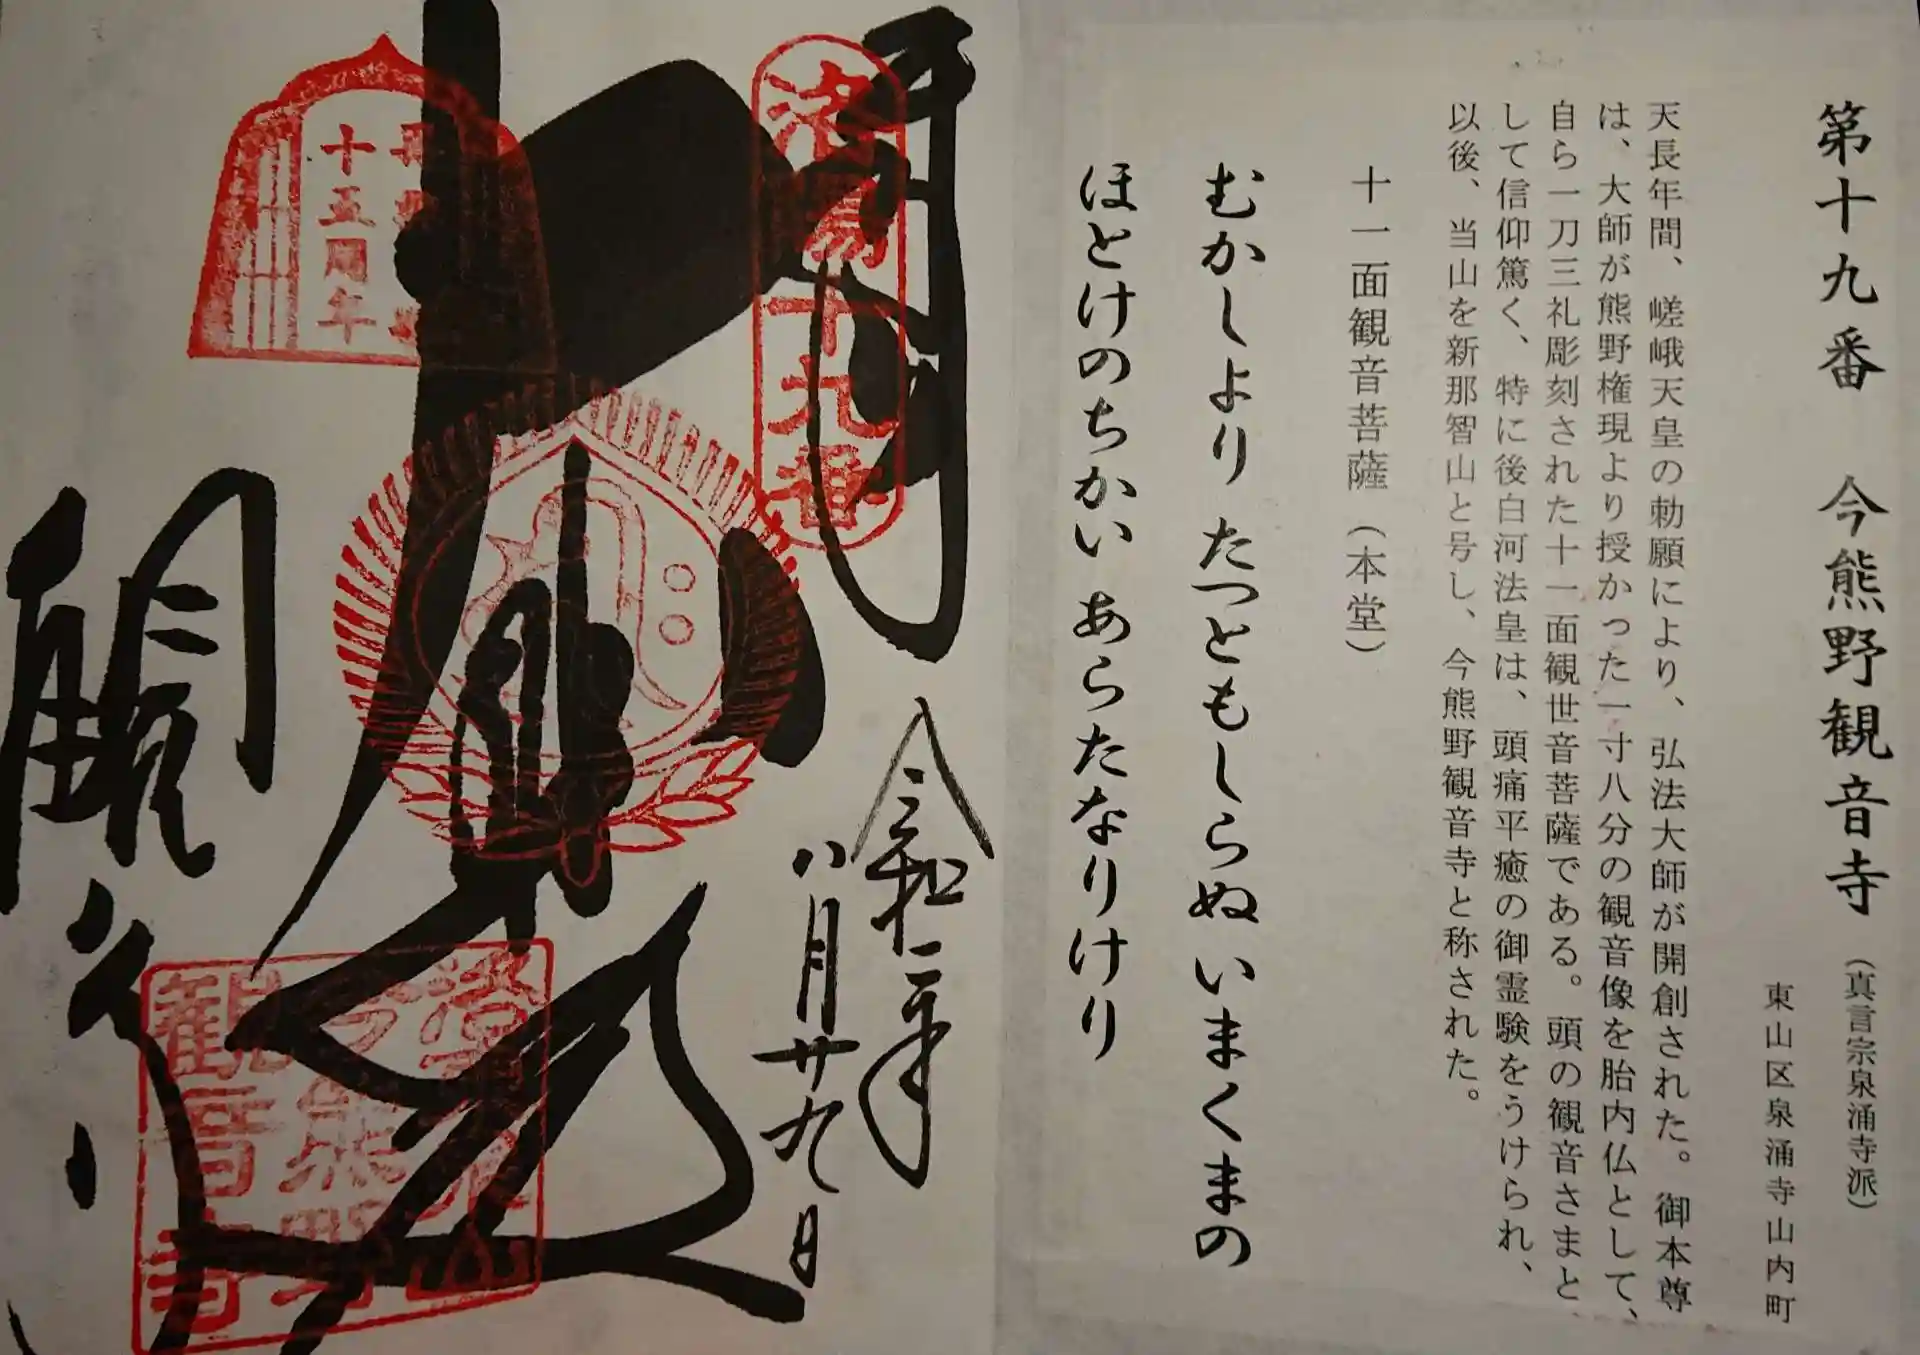 第十九番 今熊野観音寺(真言宗泉涌寺派)
東山区泉涌寺山内町
天長年間、嵯峨天皇の勅願により、弘法大師が開創された。御本尊
は、大師が熊野権現より授かった一寸八分の観音像を胎内仏として、
自ら一刀三礼彫刻された十一面観世音菩薩である。頭の観音さまと
して信仰篤く、特に後白河法皇は、頭痛平癒の御霊験をうけられ、
以後、当山を新那智山と号し、今熊野観音寺と称された。
十一面観音菩薩(本堂)
むかしより たつともしらぬ いまくまの
ほとけのちかい あらたなりけり
洛陽十九番
令和二年
八月廿九日
十五周年
今熊野
観音寺